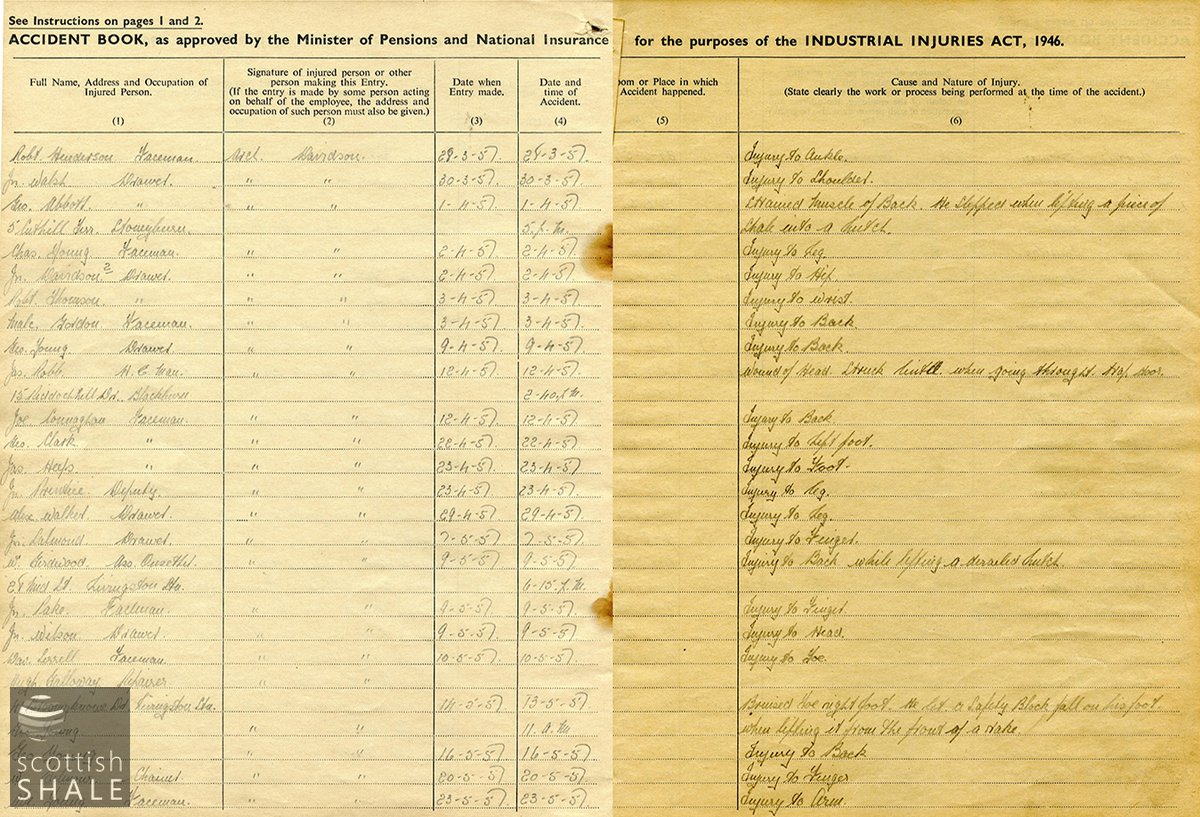 See Instructions on pages 1 and 2.
ACCIDENT BOOK, as approved by the Minister of Pensions and National Insurance for the purposes of the INDUSTRIAL INJURIES ACT, 1946.
Full Name, Address and Occupation of Injured Person. (1)
Signature of injured person or other person making this Entry. (If the entry is made by some person acting on behalf of the employee, the address and occupation of such person must also be given.) (2)
Date when Entry made. (3)
Date and time of Accident. (4)
oom or Place in which Accident happened. (5)
Cause and Nature of Injury. (State clearly the work or process being performed at the time of the accident.) (6)
Robt. Henderson Faceman. Davidson. 29-3-57. 3-57. Injury to Ankle.
Jn. Walsh Drawer. " " 30-3-57. 30-3-57. Injury to Shoulder.
Geo. Abbott. " " " 1-4-57. 1-4-57. Strained Muscle of Back. He slipped when lifting a piece of
5 Cuthill Terr. Stoneyburn. 5 p.m. Shale into a hutch.
Chas. Young Faceman. " " 2-4-57. 2-4-57. Injury to Leg.
Jn. Davidson 2 Drawer. " " 2-4-57. 2-4-57. Injury to Hip.
Robt. Thomson. " " " 3-4-57. 3-4-57. Injury to wrist.
Malc. Gordon Faceman. " " 3-4-57. 3-4-57. Injury to Back.
Geo. Young Drawer. " " 9-4-57. 9-4-57. Injury to Back.
Jas. Robb. Man. " " 12-4-57. 12-4-57. Wound of Head. Struck when going throught trap door.
15 Riddochhill Dr. Blackburn 2-40 p.m.
Joe Connaghan Faceman. " " 12-4-57. 12-4-57. Injury to Back.
Geo. Clark " " " 22-4-57. 22-4-57. Injury to left foot.
Jas. Heeps " " " 23-4-57. 23-4-57. Injury to Foot.
Jn. Prentice. Deputy. " " 23-4-57. 23-4-57. Injury to Leg.
Alex. Walker Drawer. " " 29-4-57. 29-4-57. Injury to Leg.
Jn. Salmond. Drawer. " " 7-5-57. 7-5-57. Injury to Finger.
W. Girdwood. Ass. Onsetter. " " 9-5-57. 9-5-57. Injury to Back while lifting a derailed hutch.
Mid St. Livingston Stn. 6-15 p.m.
Jn. Faceman. " " 9-5-57. 9-5-57. Injury to Finger.
Jn. Wilson Drawer. " " 9-5-57. 9-5-57. Injury to Head.
Dav. Faceman. " " 10-5-57. 10-5-57. Injury to Toe.
Hugh Galloway Repairer. " "
Rd. Livingston Stn. 14-5-57. 13-5-57. Bruised Toe right foot. He let a Safety Block fall on his foot
Young 11 a.m. when lifting it from the front of a rake.
" " 16-5-57. 16-5-57. Injury to Back
Chainer " " 20-5-57. 20-5-57. Injury to Finger
Faceman. " " 23-5-57. 23-5-57. Injury to Arm.
Scottish
SHALE